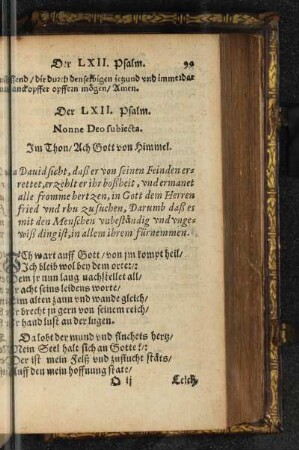 Der LXII. Psalm. 99
durch denselbigen jetzund vnd immerdar
danckopffer opffern mögen/ Amen.
Der LXII. Psalm.
Nonne Deo subiecta.
Im Thon/ Ach Gott von Himmel.
Dauid sicht, daß er von seinen Feinden er-
rettet, erzehlt er ihr boßheit, vnd ermanet
alle fromme hertzen, in Gott dem Herren
fried vnd rhu zu suchen, Darumb daß es
mit den Menschen vnbeständig vnd vnge-
wiß ding ist, in allem ihrem fürnemmen.
Ich wart auff Gott/ von jm kompt heil/
Ich bleib wol bey dem orte:/:
Dem jr nun lang nachstellet all/
jr acht seins leidens worte/
im alten zaun vnd wande gleich/
jr brecht jn gern von seinem reich/
jr hand lust an der lugen.
Da lobt der mund vnd fluchets hertz/
Mein Seel halt sich an Gotte:/:
Der ist mein Felß vnd zuflucht stäts/
Auff den mein hoffnung state/
O ij Leich,